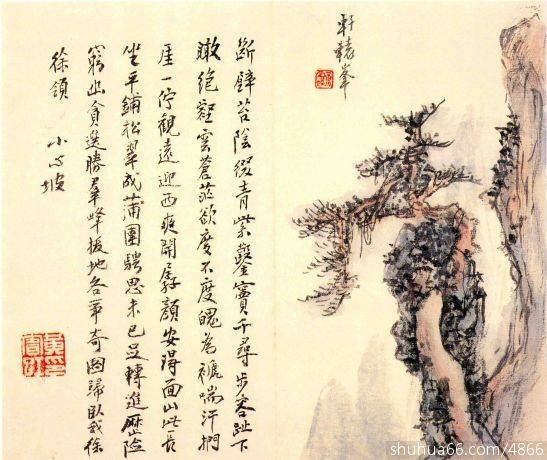 軒轅峯
斷壁苔陰綴青紫鑿竇千尋步容趾下
瞰絕壑雲蒼茫欲度不度魄為褫喘汗捫
厓一佇觀遠迎西爽開孱顏安得面山此長
坐平鋪松翠成蒲團騁思未已足轉進歷險
窮幽貪選勝羣峰拔地各爭奇圖歸臥我徐
徐領
小心坡
shuhua66.com/4866